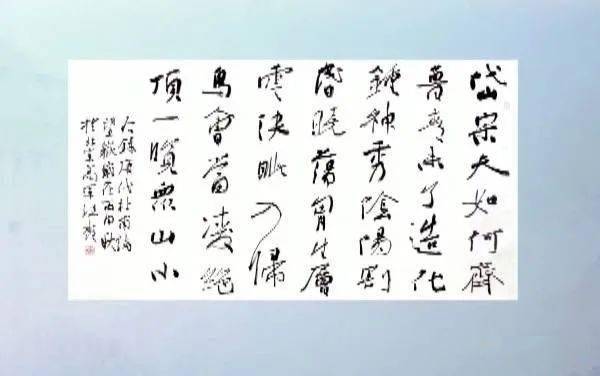 岱宗夫如何齊
魯青未了造化
鍾神秀陰陽割
昏曉蕩胷生層
雲決眦入歸
鳥會當凌絕
頂一覽眾山小
錄唐代杜甫詩
望嶽歲在丙申秋
於北京